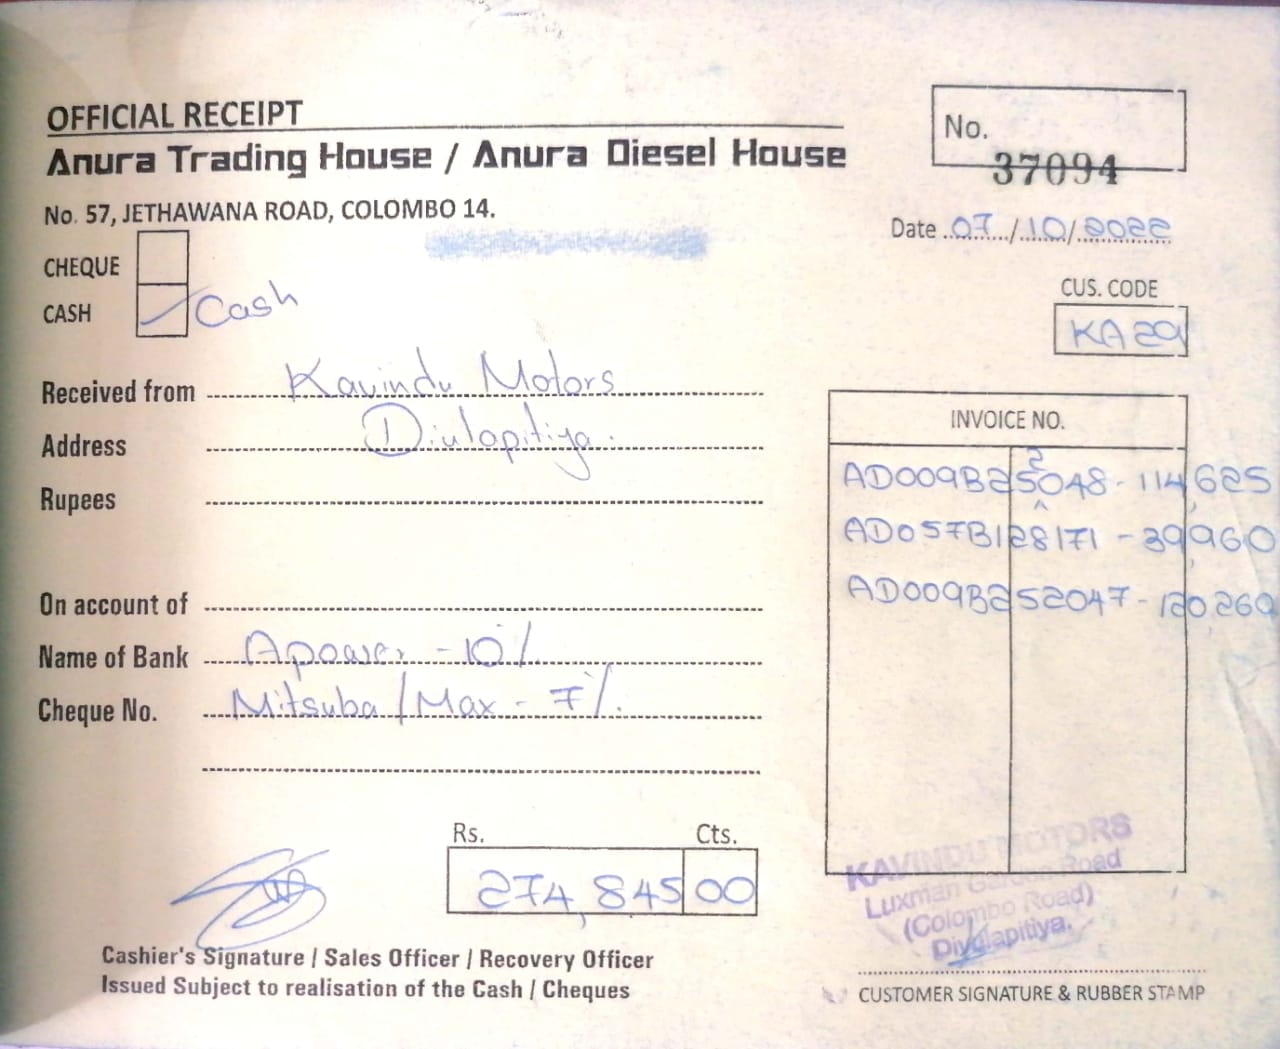 OFFICIAL RECEIPT
Anura Trading House / Anura Diesel House
No. 57, JETHAWANA ROAD, COLOMBO 14.
No. 37094
Date 07/10/2022
CHEQUE
CASH Cash
CUS. CODE
KA29
Received from Kavindu Motors
Address Diulapitiya.
Rupees
On account of
Name of Bank Apower - 10%
Cheque No. Mitsuba / Max - 7%.
INVOICE NO.
AD009B252048 - 114,625
AD057B128171 - 39,960
AD009B252047 - 120,260
Rs. Cts.
274,845 00
Cashier's Signature / Sales Officer / Recovery Officer
Issued Subject to realisation of the Cash / Cheques
KAVINDU MOTORS
Luxman Garden Road
(Colombo Road)
Divulapitiya.
CUSTOMER SIGNATURE & RUBBER STAMP